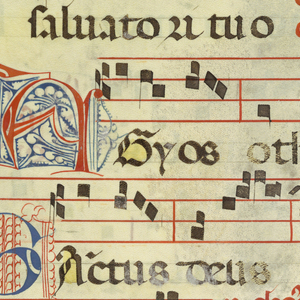 saluato ri tuo
AGyos oth
SActus deus